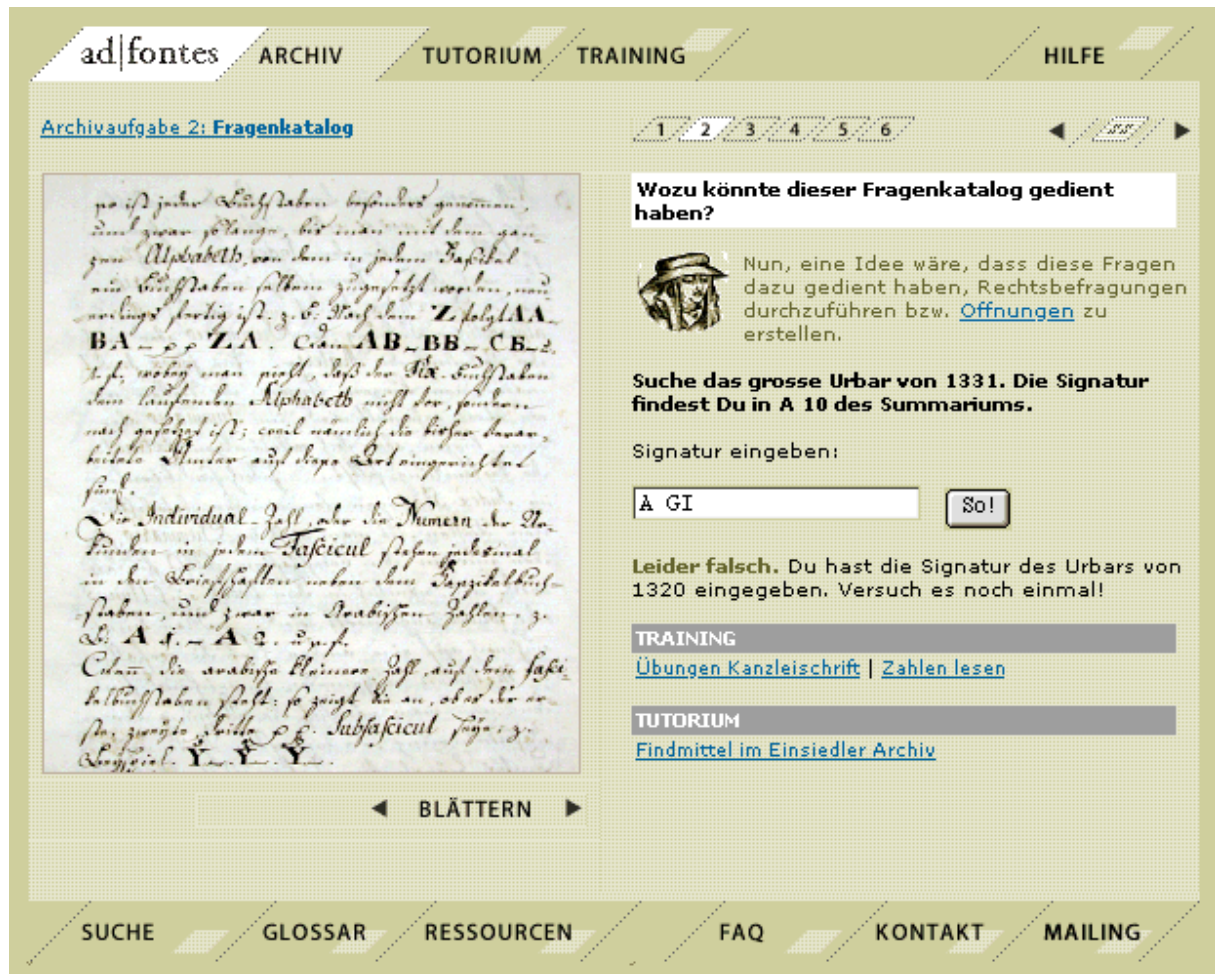 ad|fontes ARCHIV TUTORIUM TRAINING HILFE
Archivaufgabe 2: Fragenkatalog
1 2 3 4 5 6
so ist jeder Buchstaben besonders genommen,
und zwar so lange, bis man mit dem gan-
zen Alphabeth, von dem in jedem Faszikel
ein Buchstaben selbem zugesetzt worden, neu-
erdings fertig ist. z. B. Nach dem Z folgt AA.
BA – ZA. Dann AB – BB – CB –
wobey man sieht, daß der Fix-Buchstaben
dem laufenden Alphabeth nicht vor, sondern
nach gesetzet ist; weil nämlich die bisher verar-
beitete Ämter auf diese Art eingerichtet
sind.
Die Individual-Zahl, oder die Numern der Ur-
kunden in jedem Fascicul stehen jedesmal
in den Briefschaften neben dem Faszikelbuch-
staben, und zwar in Arabischen Zahlen. z.
B. A 1. – A 2. u. s. f.
Dann die arabische kleinere Zahl, auf dem Faszi-
kelbuchstaben steht: so zeigt sie an, ob es der er-
ste, zweyte, dritte Subfascicul seye. z.
Beyspiel. Y. Y. Y.
BLÄTTERN
Wozu könnte dieser Fragenkatalog gedient
haben?
Nun, eine Idee wäre, dass diese Fragen
dazu gedient haben, Rechtsbefragungen
durchzuführen bzw. Offnungen zu
erstellen.
Suche das grosse Urbar von 1331. Die Signatur
findest Du in A 10 des Summariums.
Signatur eingeben:
A GI So!
Leider falsch. Du hast die Signatur des Urbars von
1320 eingegeben. Versuch es noch einmal!
TRAINING
Übungen Kanzleischrift | Zahlen lesen
TUTORIUM
Findmittel im Einsiedler Archiv
SUCHE GLOSSAR RESSOURCEN FAQ KONTAKT MAILING